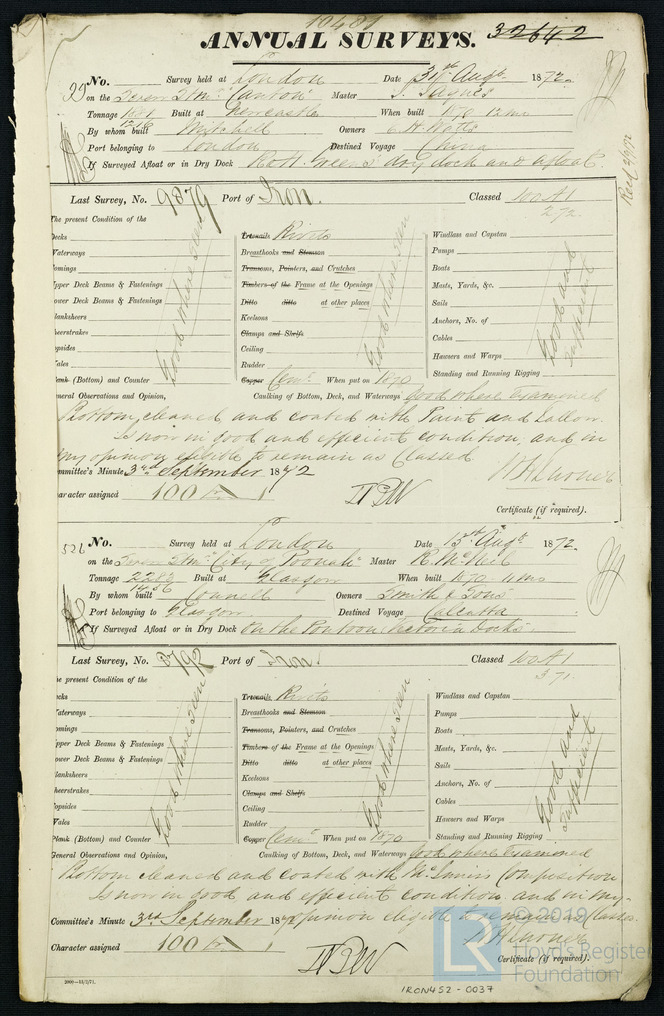 10481
ANNUAL SURVEYS. 32642
No. Survey held at London Date 31st Augt 1872.
on the Screw Stmr "Canton" Master S. Jaques
Tonnage Built at Newcastle When built 1870-12mo
By whom built Mitchell Owners
Port belonging to London Destined Voyage China
If Surveyed Afloat or in Dry Dock R & H. Green's dry dock and afloat.
Recd 2/9/72
Last Survey, No. 9879 Port of Iron. Classed 100A1
2,72.
The present Condition of the
Decks
Waterways
Comings
Upper Deck Beams & Fastenings
Lower Deck Beams & Fastenings
Planksheers
Sheerstrakes
Topsides
Wales
Plank (Bottom) and Counter
Good where seen
Treenails Rivets
Breasthooks and Stemson
Transoms, Pointers, and Crutches
Timbers of the Frame at the Openings
Ditto ditto at other places
Keelsons
Clamps and Shelfs
Ceiling
Rudder
Copper Cemt When put on 1870
Good where seen
Windlass and Capstan
Pumps
Boats
Masts, Yards, &c.
Sails
Anchors, No. of
Cables
Hawsers and Warps
Standing and Running Rigging
Good and
Sufficient
General Observations and Opinion, Caulking of Bottom, Deck, and Waterways Good where examined
Bottom cleaned and coated with Paint and Tallow.
Is now in good and efficient condition, and in
my opinion eligible to remain as Classed
Committee's Minute 3rd September 1872
Character assigned 100 A 1
Certificate (if required).
526 No. Survey held at London Date 13th Augt 1872.
on the Screw Stmr "City of Poonah" Master R. McNeil
Tonnage Built at Glasgow When built 1870-11mo
By whom built Connell Owners Smith & Sons
Port belonging to Glasgow Destined Voyage Calcutta
If Surveyed Afloat or in Dry Dock On the Pontoon, Victoria Docks.
Last Survey, No. 3792 Port of Iron. Classed 100A1
3,71.
The present Condition of the
Decks
Waterways
Comings
Upper Deck Beams & Fastenings
Lower Deck Beams & Fastenings
Planksheers
Sheerstrakes
Topsides
Wales
Plank (Bottom) and Counter
Good where seen
Treenails Rivets
Breasthooks and Stemson
Transoms, Pointers, and Crutches
Timbers of the Frame at the Openings
Ditto ditto at other places
Keelsons
Clamps and Shelfs
Ceiling
Rudder
Copper Cemt When put on 1870
Good where seen
Windlass and Capstan
Pumps
Boats
Masts, Yards, &c.
Sails
Anchors, No. of
Cables
Hawsers and Warps
Standing and Running Rigging
Good and
Sufficient
General Observations and Opinion, Caulking of Bottom, Deck, and Waterways Good where Examined
Bottom cleaned and coated with McInnis Composition
Is now in good and efficient condition and in my
Committee's Minute 3rd September 1872 opinion eligible to remain as Classed
Character assigned 100 A 1
Certificate (if required).
2000—13/2/71.
IRON452-0037
LR © 2019
Lloyd's Register
Foundation